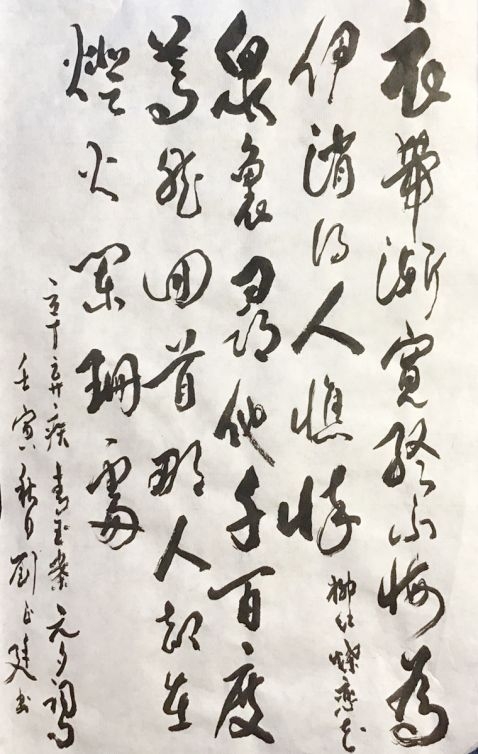 衣帶漸寬終不悔為
伊消得人憔悴 柳永蝶戀花
眾裏尋他千百度
驀然回首那人卻在
燈火闌珊處
辛弃疾青玉案元夕詞
壬寅秋月劉正廷書